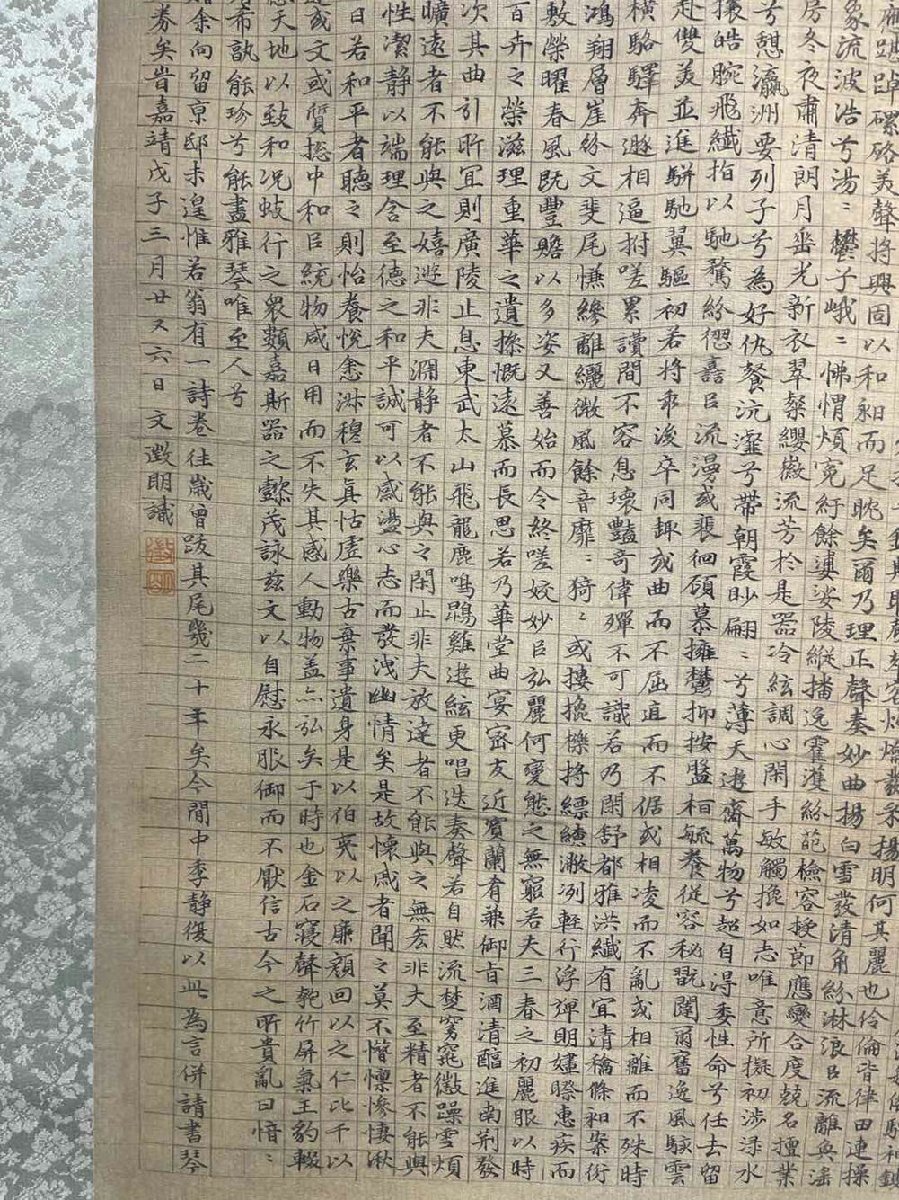 容灼爚發采揚明何其麗也伶倫比律田連操
應踸踔磥硌美聲將興固以和昶而足耽矣爾乃理正聲奏妙曲揚白雪發清角紛淋浪以流離奐淫
象流波浩兮湯〻鬱兮峨〻怫愲煩冤紆餘婆娑陵縱播逸霍濩紛葩檢容授節應變合度兢名擅業
房冬夜肅清朗月垂光新衣翠粲纓徽流芳於是器冷絃調心閑手敏觸㩎如志唯意所擬初涉淥水
兮憩瀛洲要列子兮為好仇餐沆瀣兮帶朝霞眇翩〻兮薄天遊齊萬物兮超自得委性命兮任去留
攘皓腕飛纖指以馳騖紛㒊譶以流漫或裴徊顧慕擁鬱抑按盤桓毓養從容秘翫闥爾奮逸風駭雲
赴雙美並進駢馳翼驅初若將乖後卒同趣或曲而不屈直而不倨或相凌而不亂或相離而不殊時
橫駱驛奔遯相逼拊嗟累讚間不容息瓌豔奇偉殫不可識若乃閑舒都雅洪纖有宜清和條昶案衍
鴻翔層崖紛文斐尾慊縿離纚微風餘音靡〻猗〻或摟㩎擽捋縹繚潎冽輕行浮彈明嫿㬒惠疾而
敷榮曜春風既豐贍以多姿又善始而令終嗟姣妙以弘麗何變態之無窮若夫三春之初麗服以時
百卉之榮滋理重華之遺操慨遠慕而長思若乃華堂曲宴密友近賓蘭肴兼御旨酒清醇進南荊發
次其曲引所宜則廣陵止息東武太山飛龍鹿鳴鵾雞遊絃更唱迭奏聲若自然流楚窈窕懲躁雪煩
曠遠者不能與之嬉遊非夫淵靜者不能與之閑止非夫放達者不能與之無吝非夫至精者不能與
性潔靜以端理含至德之和平誠可以感盪心志而發洩幽情矣是故懷戚者聞之莫不憯懍慘悽愀
日若和平者聽之則怡養悅愉淑穆玄真恬虛樂古棄事遺身是以伯夷以之廉顏回以之仁比干以
或文或質摠中和以統物咸日用而不失其感人動物蓋亦弘矣于時也金石寢聲匏竹屏氣王豹輟
感天地以致和況蚑行之眾類嘉斯器之懿茂詠茲文以自慰永服御而不厭信古今之所貴亂曰愔〻
希孰能珍兮能盡雅琴唯至人兮
余向留京邸未遑惟若翁有一詩卷往歲曾跋其尾幾二十年矣今閒中季靜復以此為言併請書琴
券矣旹嘉靖戊子三月廿又六日文徵明識
徵
明